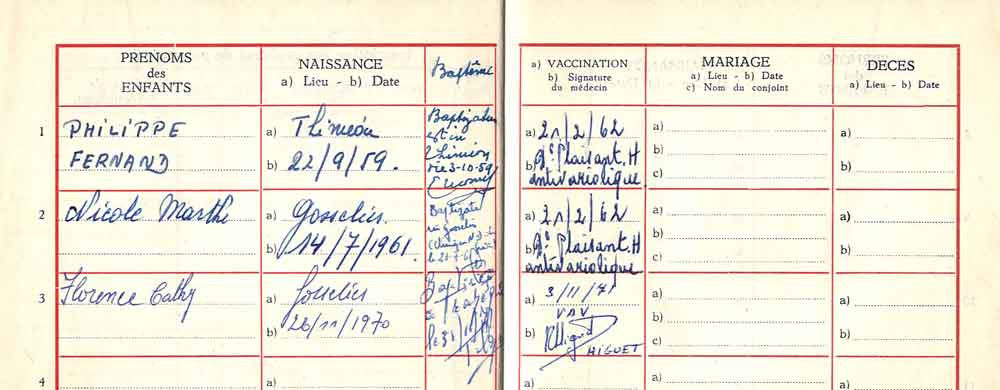 PRENOMS
des
ENFANTS
NAISSANCE
a) Lieu - b) Date
Baptême
a) VACCINATION
b) Signature
du médecin
MARIAGE
a) Lieu - b) Date
c) Nom du conjoint
DECES
a) Lieu - b) Date
1
PHILIPPE
FERNAND
a) Thiméon
b) 22/9/59.
Baptizatus
est in
Thiméon
die 3-10-59
a) 21/2/62
b) Dr Plaisant. H
antivariolique
a)
b)
c)
a)
b)
2
Nicole Marthe
a) Gosselies
b) 14/7/1961.
Baptizata
a) 21/2/62
b) Dr Plaisant. H
antivariolique
a)
b)
c)
a)
b)
3
Florence Cathy
a) Gosselies
b) 26/11/1970
a) 3/11/71
VAV
b)
HIGUET
a)
b)
c)
a)
b)
4
a)
a)
a)
a)